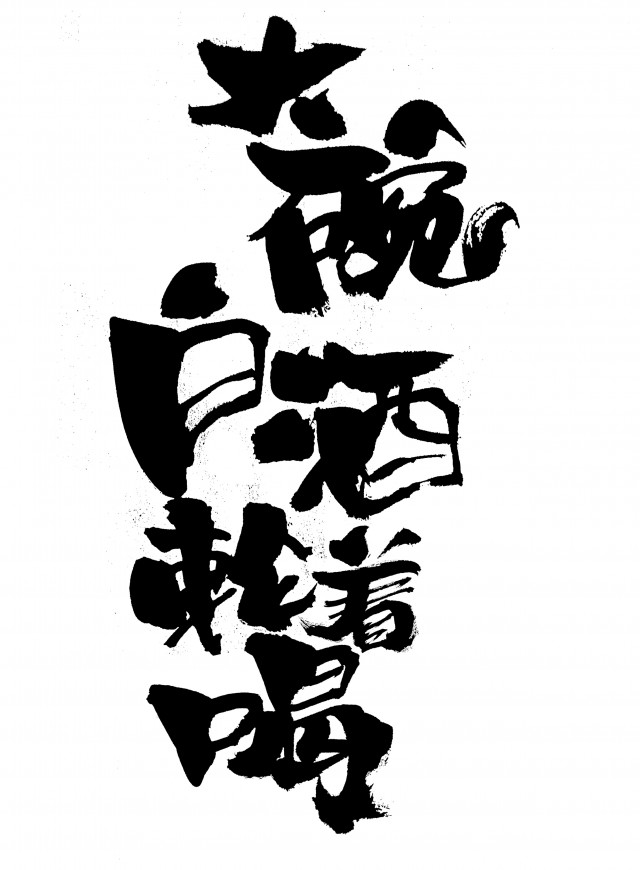 大碗白酒輪着喝